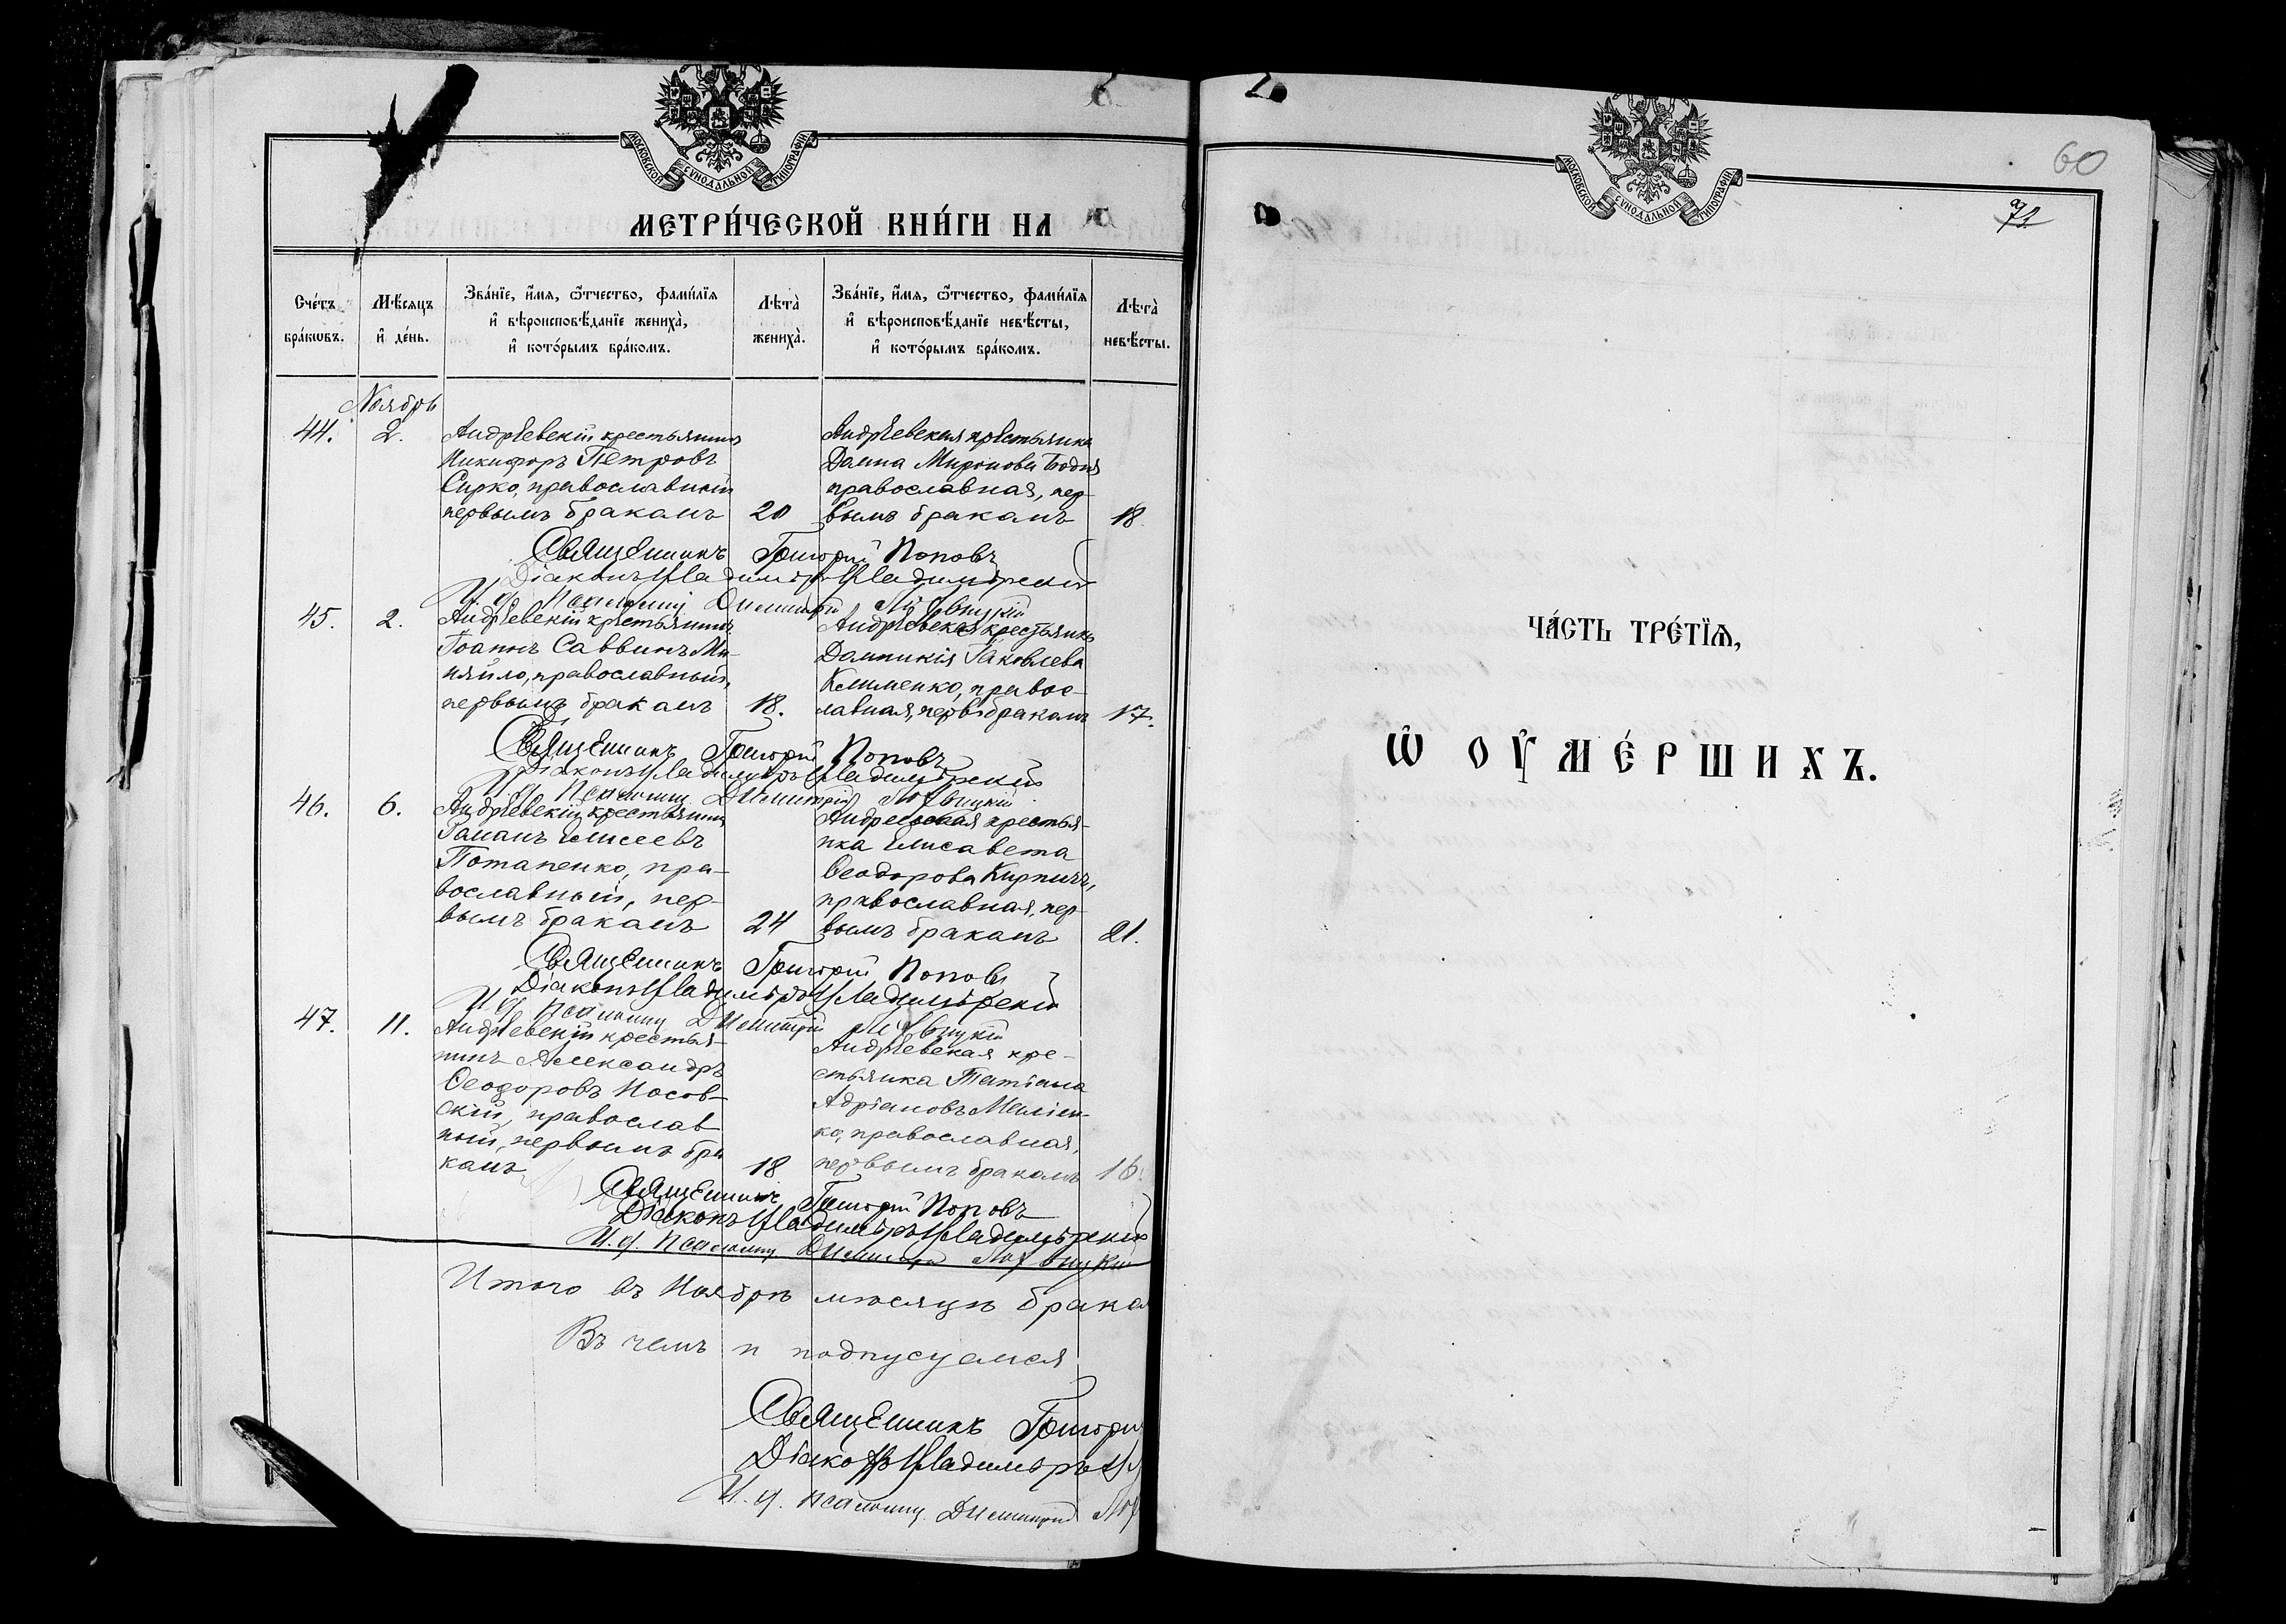 МОСКОВСКОЙ СѴНОДАЛЬНОЙ ТИПОГРАФІИ
МЕТРИ́ЧЕСКОЙ КНИ́ГИ НА
Сче́тъ бра́кωвъ.
Мѣ́сяцъ и҆ де́нь.
Зва́нїе, и҆́мя, ѻ҆́тчество, фами́лїя
и҆ вѣроисповѣ́данїе жениха̀,
и҆ кото́рымъ бра́комъ.
Лѣта̀ жениха̀.
Зва́нїе, и҆́мя, ѻ҆́тчество, фами́лїя
и҆ вѣроисповѣ́данїе невѣ́сты,
и҆ кото́рымъ бра́комъ.
Лѣта̀ невѣ́сты.
Ноябрь
44. 2.
Андрѣевскій крестьянинъ
Никифоръ Петровъ
Сирко, православный
первымъ бракомъ
20
Андрѣевская крестьянка
Домна Миронова
православная, пер-
вымъ бракомъ
18
Священникъ Григорій Поповъ
Діаконъ Владиміръ Владимірскій
И. д. Псаломщ. Димитрій
45. 2.
Андрѣевскій крестьянинъ
Іоаннъ Саввинъ Ми-
няйло, православный,
первымъ бракомъ
18.
Андрѣевская крестьянка
Домникія Іаковлева
Клименко, правос-
лавная, перв. бракомъ
17.
Священникъ Григорій Поповъ
Діаконъ Владиміръ Владимірскій
И. д. Псаломщ. Димитрій
46. 6.
Андрѣевскій крестьянинъ
Романъ Елисеевъ
Потапенко, пра-
вославный, пер-
вымъ бракомъ
24
Андреевская крестья-
нка Елисавета
Ѳеодорова Кирпичъ,
православная, пер-
вымъ бракомъ
21.
Священникъ Григорій Поповъ
Діаконъ Владиміръ Владимірскій
И. д. Псаломщ. Димитрій
47. 11.
Андрѣевскій крестья-
нинъ Александръ
Ѳеодоровъ Носов-
скій, православ
ный, первымъ бра
комъ
18
Андрѣевская кре-
стьянка Татіана
Адріановъ
ко, православная,
первымъ бракомъ
16.
Священникъ Григорій Поповъ
Діаконъ Владиміръ Владимірскій
И. д. Псаломщ. Димитрій
Итого въ Ноябрѣ мѣсяцѣ брако
Въ чемъ и подпусуемся
Священникъ Григорій
Діаконъ Владиміръ
И. д. псаломщ. Димитрій
МОСКОВСКОЙ СѴНОДАЛЬНОЙ ТИПОГРАФІИ
60
ЧА́СТЬ ТРЕ́ТЇѦ,
Ѽ ОУ҆МЕ́РШИХЪ.